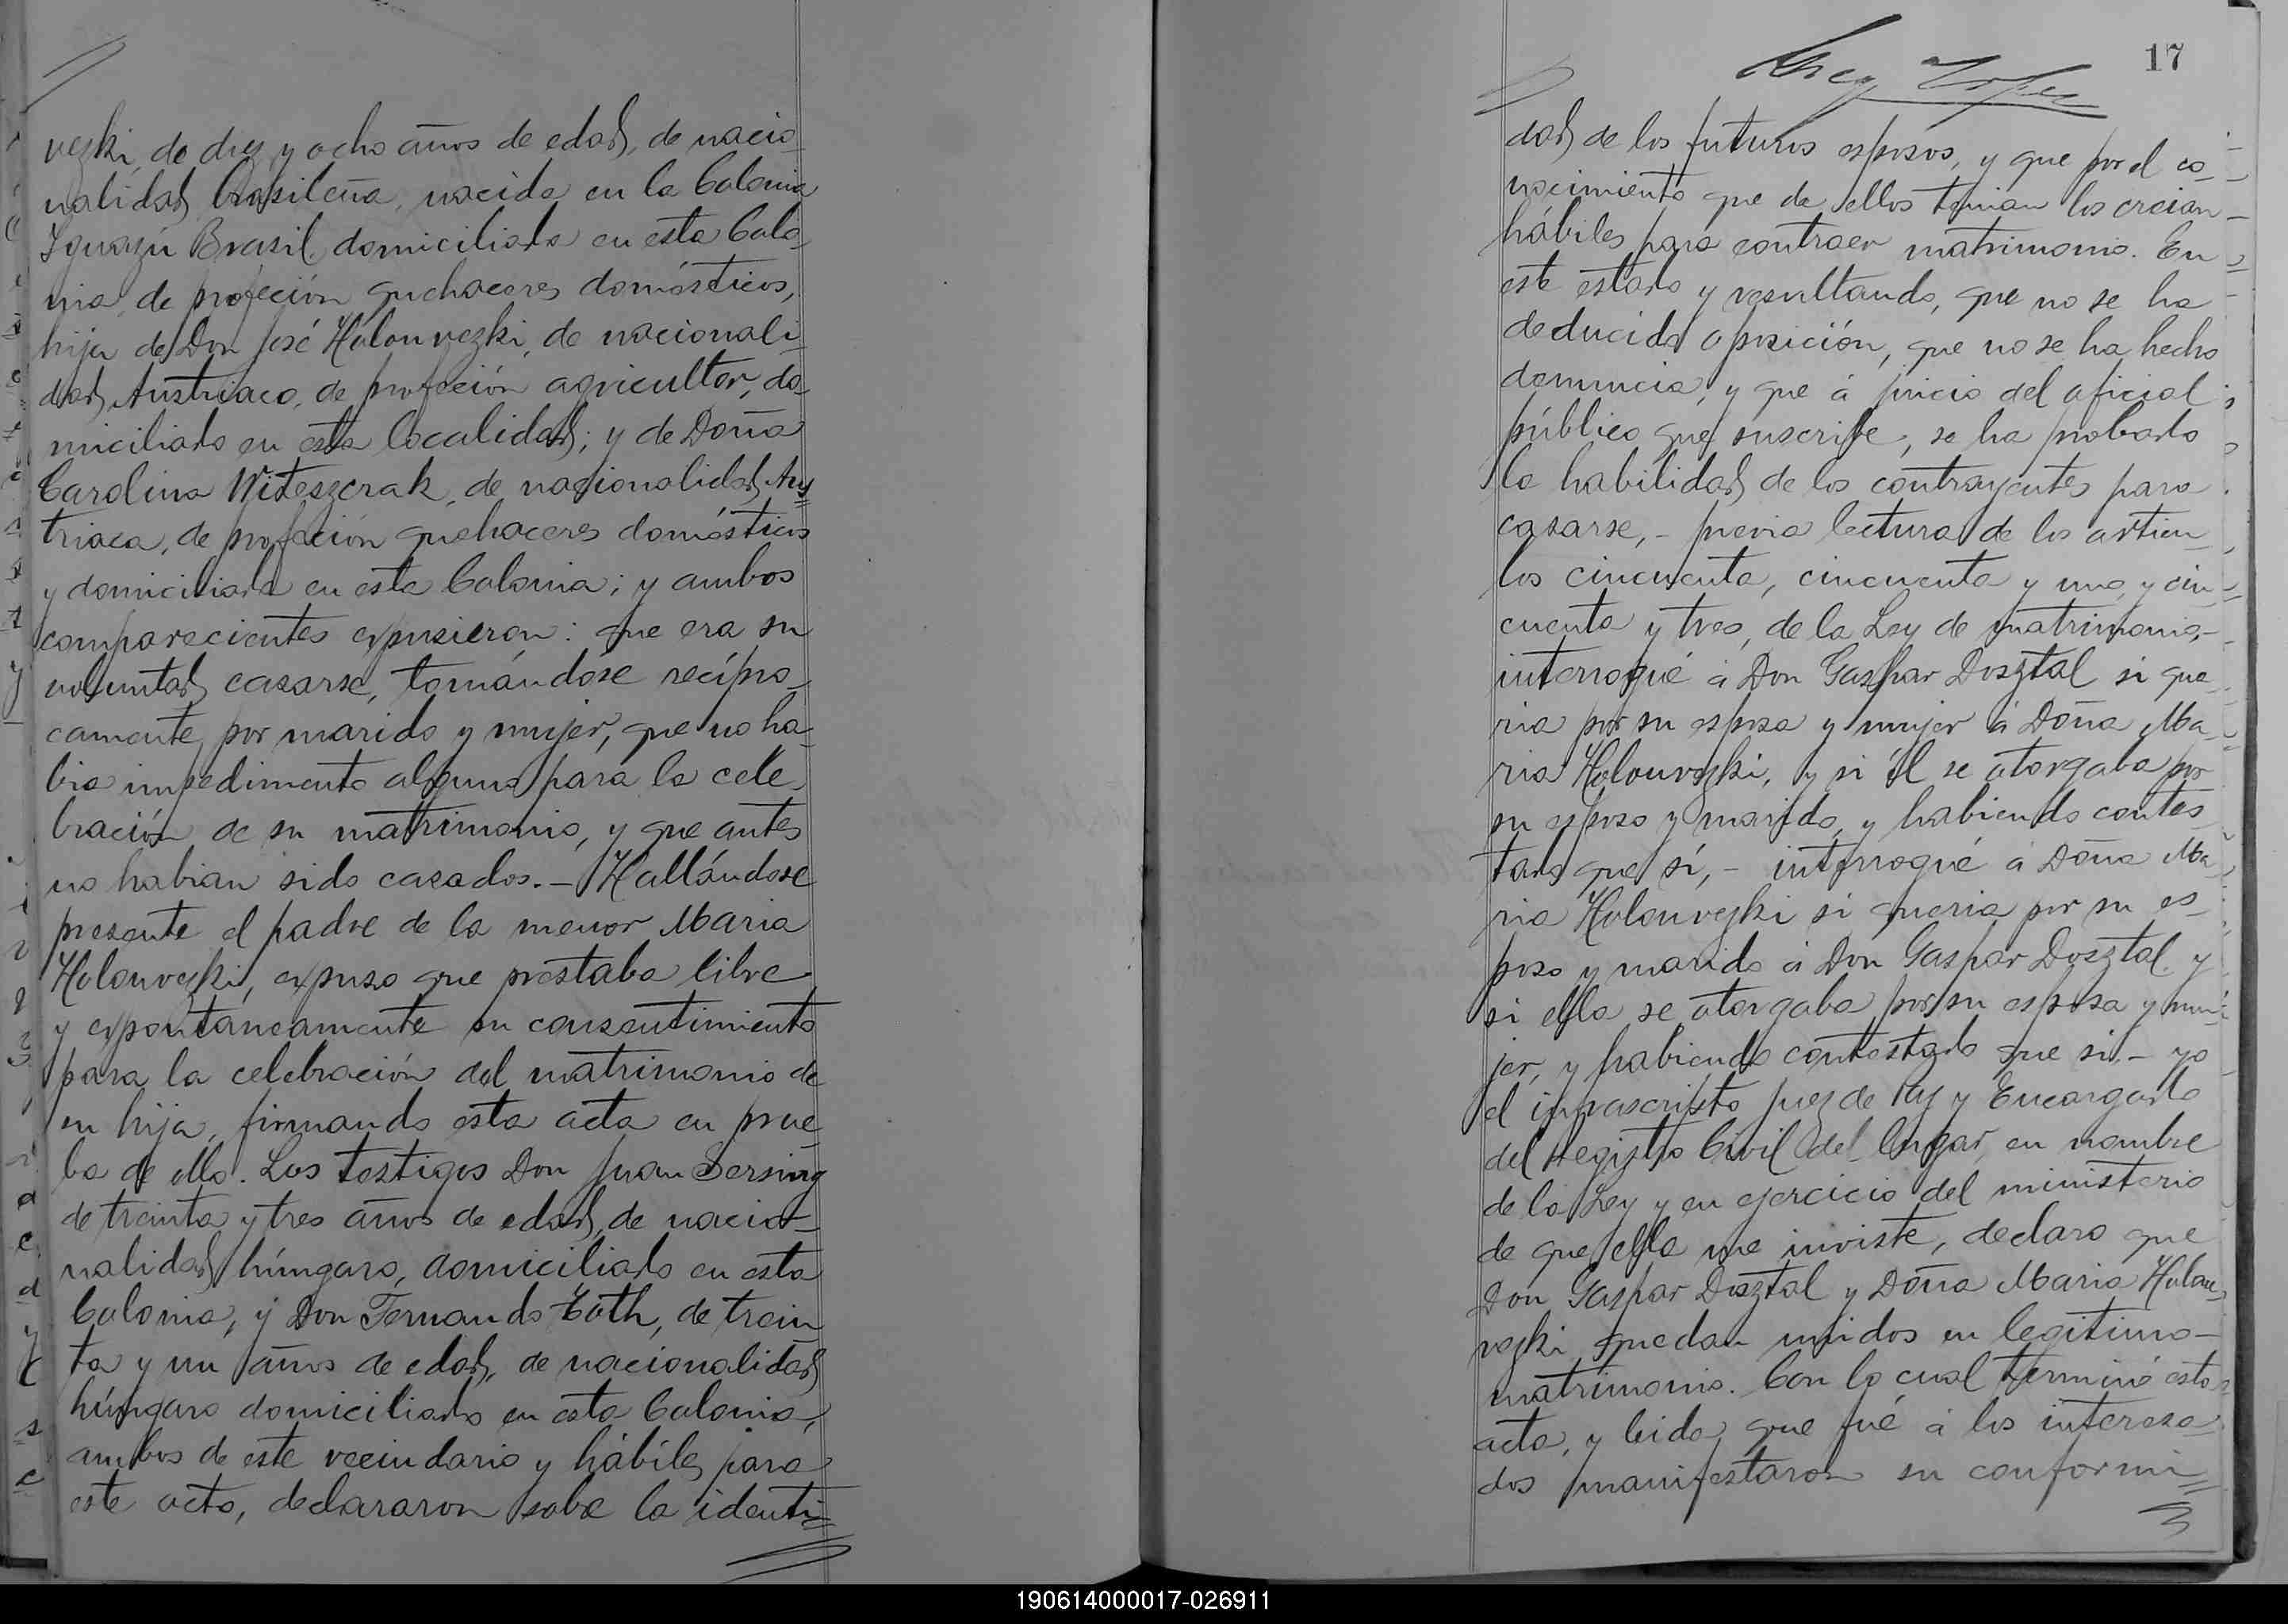 vezki, de diez y ocho años de edad, de nacio
nalidad brasileña, nacida en la Colonia
Yguazú Brasil, domiciliada en esta Colo
nia, de profeción quehaceres domésticos,
hija de Don José Holouvezki, de nacionali
dad Austriaco, de profeción agricultor, do
miciliado en esta localidad; y de Doña
Carolina Witeszcrak, de nacionalidad Aus
triaca, de profeción quehaceres domésticos
y domiciliada en esta Colonia; y ambos
comparecientes expusieron: que era su
voluntad casarse, tomándose recípro
camente por marido y mujer, que no ha
bia impedimento alguno para la cele
bración de su matrimonio, y que antes
no habian sido casados.- Hallándose
presente el padre de la menor Maria
Holouvezki, expuso que prestaba libre
y expontaneamente su consentimiento
para la celebración del matrimonio de
su hija, firmando esta acta en prue
ba de ello. Los testigos Don Juan Sersing
de treinta y tres años de edad, de nacio
nalidad húngaro, domiciliado en esta
Colonia, y Don Fernando Tóth, de trein
ta y un años de edad, de nacionalidad
húngaro domiciliado en esta Colonia,
ambos de este vecindario y hábiles para
este acto, declararon sobre la identi
17
dad de los futuros esposos, y que por el co
nocimiento que de ellos tenian los creian
hábiles para contraer matrimonio. En
este estado y resultando, que no se ha
deducido oposición, que no se ha hecho
denuncia, y que á juicio del oficial
público que suscribe, se ha probado
la habilidad de los contrayentes para
casarse,- previa lectura de los artícu
los cincuenta, cincuenta y uno, y cin
cuenta y tres, de la Ley de matrimonio,-
interrogué á Don Gaspar Dosztal si que
ria por su esposa y mujer á Doña Ma
ria Holouvezki, y si él se otorgaba por
su esposo y marido, y habiendo contes
tado que sí,- interrogué á Doña Ma
ria Holouvezki si queria por su es
poso y marido á Don Gaspar Dosztal y
si ella se otorgaba por su esposa y mu
jer, y habiendo contestado que si,- yo
el infrascripto Juez de Paz y Encargado
del Registro Civil del lugar, en nombre
de la Ley y en ejercicio del ministerio
de que ella me inviste, declaro que
Don Gaspar Dosztal y Doña Maria Holou
vezki quedan unidos en legitimo
matrimonio. Con lo cual terminó esta
acta, y leida que fué á los interesa
dos manifestaron su conformi
190614000017-026911